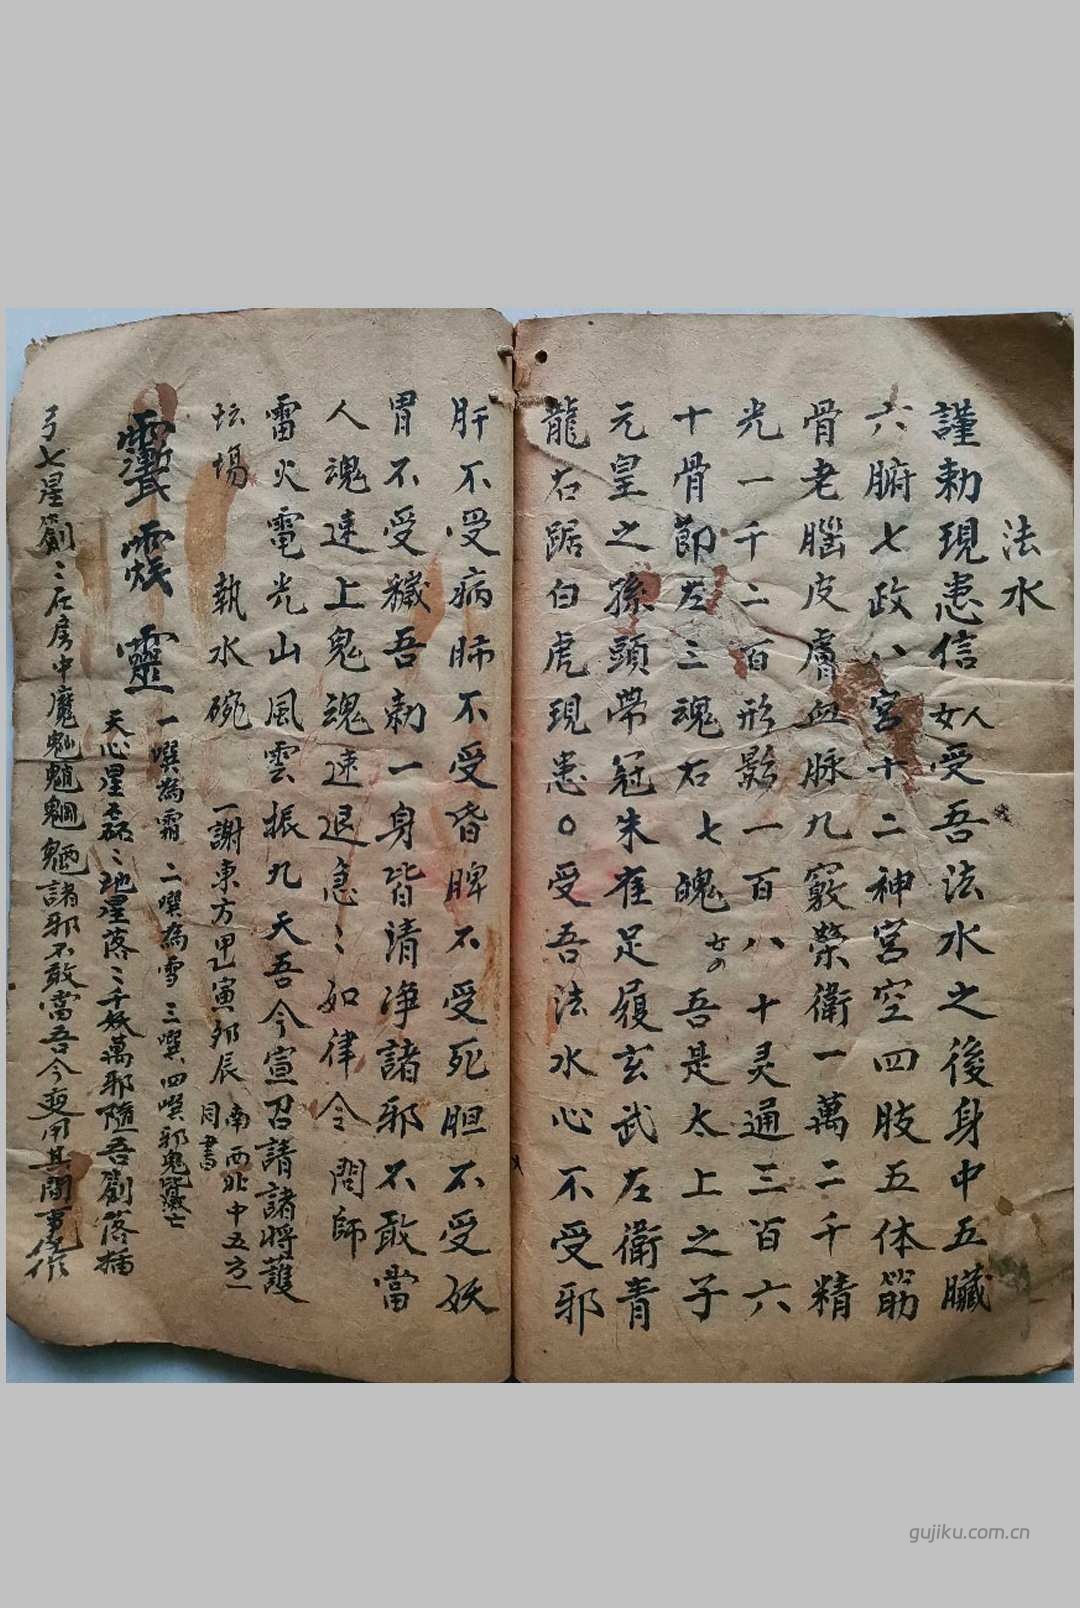 法水
謹勅現患信女人受吾法水之後身中五臟
六腑七政八宮十二神宮空四肢五体筋
骨老腦皮膚血脉九竅榮衛一萬二千精
光一千二百形影一百八十灵通三百六
十骨節左三魂右七魄女の吾是太上之子
元皇之孫頭帶冠朱雀足履玄武左衛青
龍右踞白虎現患〇受吾法水心不受邪
肝不受病肺不受昏脾不受死胆不受妖
胃不受穢吾勅一身皆清净諸邪不敢當
人魂速上鬼魂速退急〻如律令 問師
雷火電光山風雲振九天吾今宣召請諸將護
坛場 執水碗 一謝東方甲乙寅卯辰 南西北中五方一同書
靈 一噀為霜二噀為雪三噀四噀邪鬼皆滅亡
天心星〻地星落〻千妖萬邪隨吾劉落插
弓七星劉〻在房中魔魍諸邪不敢當吾今要用其間
gujiku.com.cn